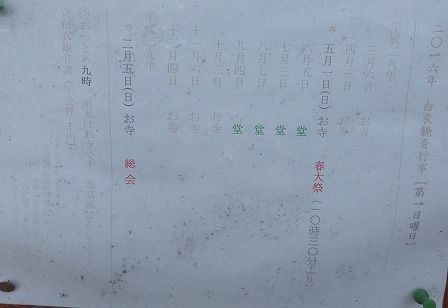 二〇一六年 白衣観音行事【第一日曜日】
平成二八年
三月六日 お寺
四月三日 お寺
＊五月一日(日) お寺 春大祭(一〇時三〇分より)
六月五日 堂
七月三日 堂
八月七日 堂
九月四日 堂
十月二日 お寺
十一月六日 お寺
十二月四日 お寺
平成二九年
＊二月五日(日) お寺 総会
◎おつとめ九時